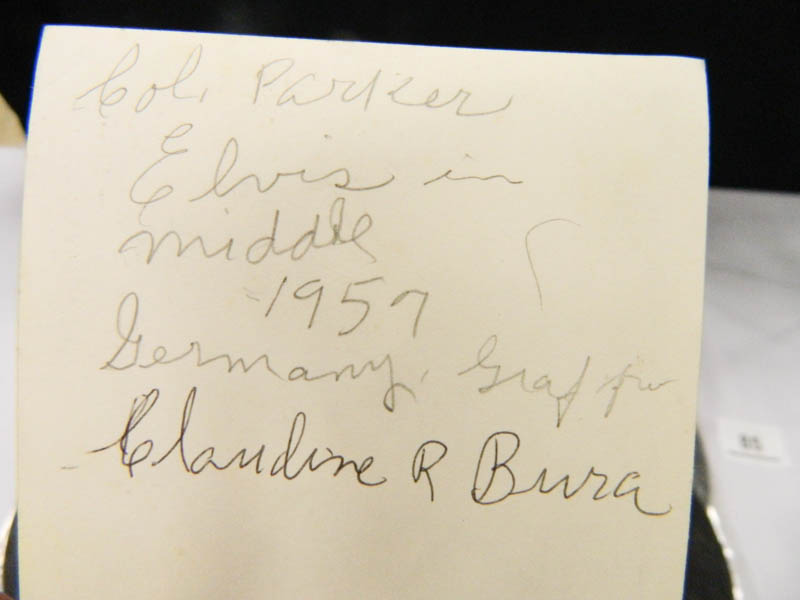 Col. Parker
Elvis in
middle
-1957
Germany, Graf
Claudine R Bura
85